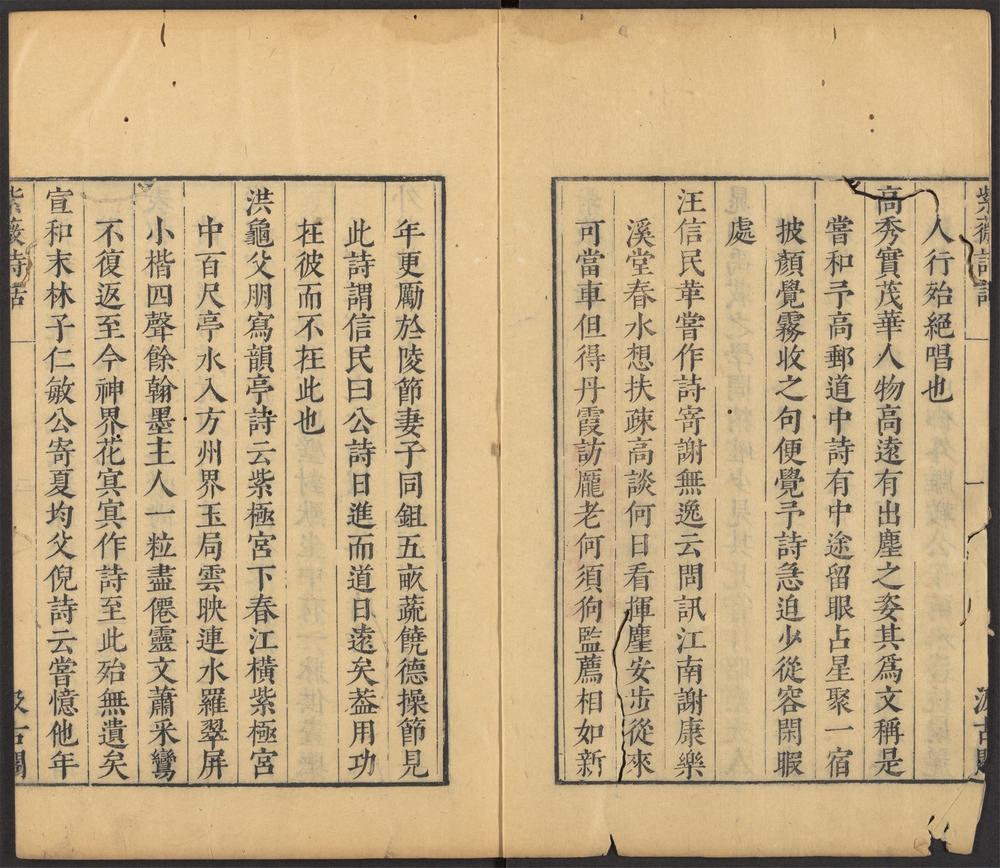 紫薇詩話
人行殆絕唱也
高秀實茂華人物高遠有出塵之姿其爲文稱是
嘗和予高郵道中詩有中途留眼占星聚一宿
披顏覺霧收之句便覺予詩急迫少從容閑暇
處
汪信民革嘗作詩寄謝無逸云問訊江南謝康樂
溪堂春水想扶疎高談何日看揮麈安步從來
可當車但得丹霞訪龐老何須狗監薦相如新
年更勵於陵節妻子同鉏五畝蔬饒德操節見
此詩謂信民曰公詩日進而道日遠矣葢用功
在彼而不在此也
洪龜父朋寫韻亭詩云紫極宮下春江橫紫極宮
中百尺亭水入方州界玉局雲映連水羅翠屏
小楷四聲餘翰墨主人一粒盡僊靈文蕭采鸞
不復返至今神界花㝠㝠作詩至此殆無遺矣
宣和末林子仁敏公寄夏均父倪詩云嘗憶他年
紫薇詩話
汲古閣